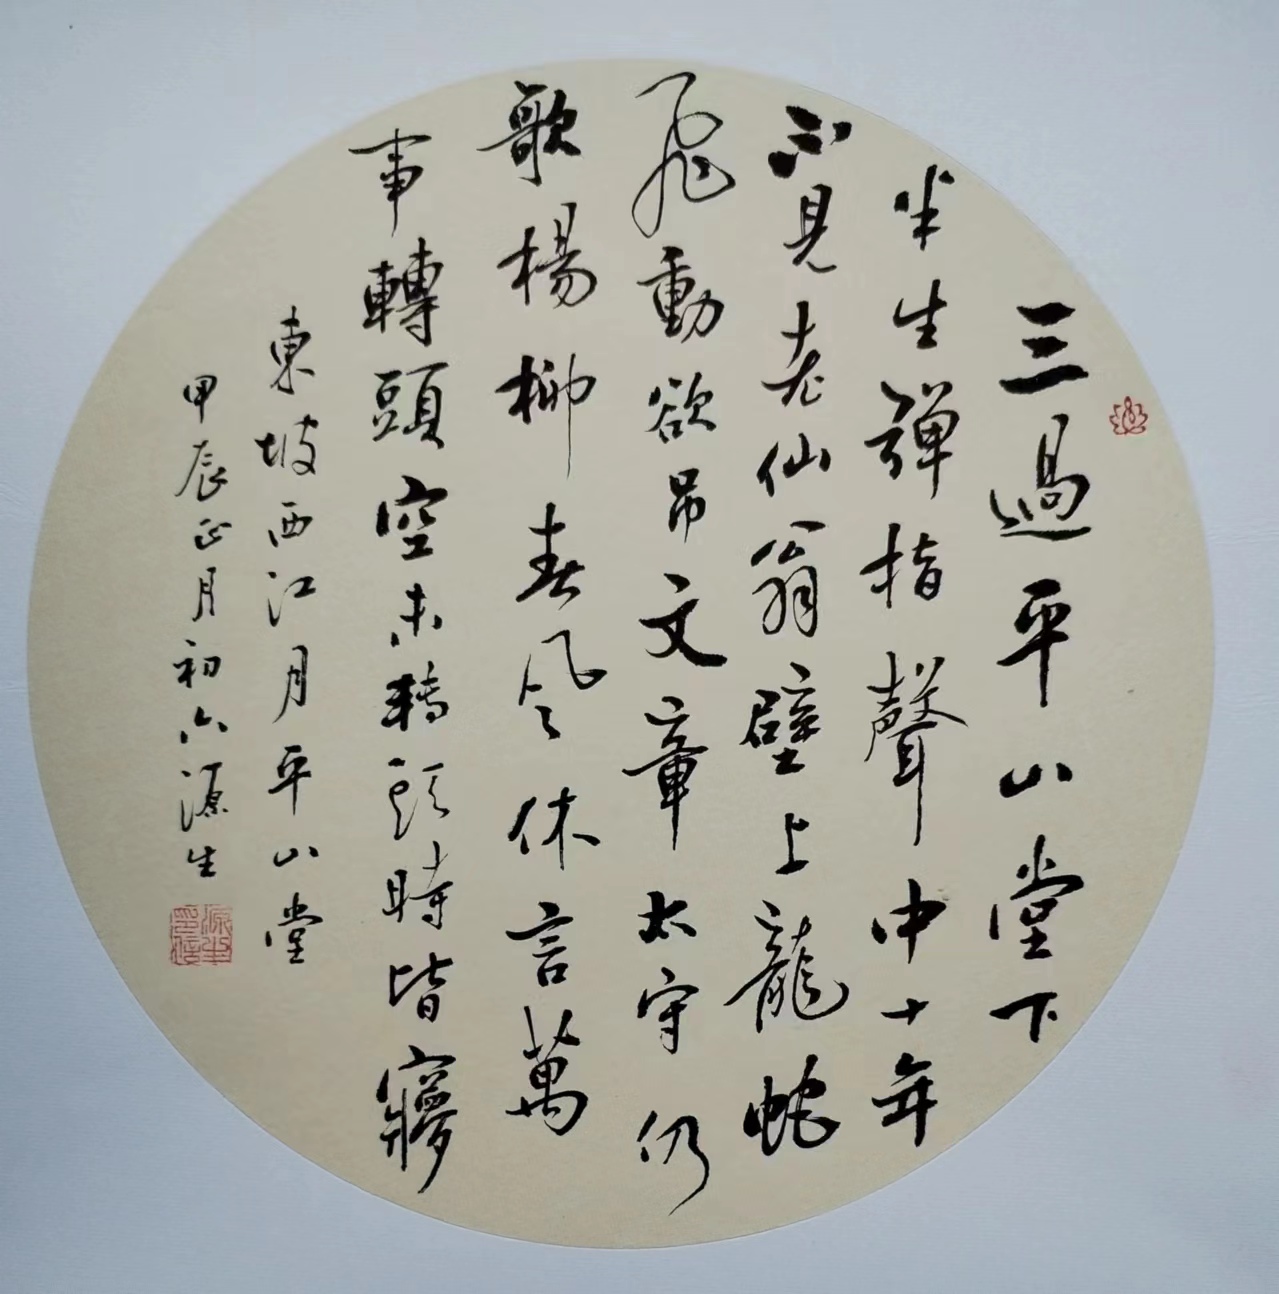 三過平山堂下
半生彈指聲中十年
不見老仙翁壁上龍蛇
飛動欲吊文章太守仍
歌楊柳春风今休言萬
事轉頭空未轉头時皆㝱
東坡西江月平山堂
甲辰正月初六源生
源生印信